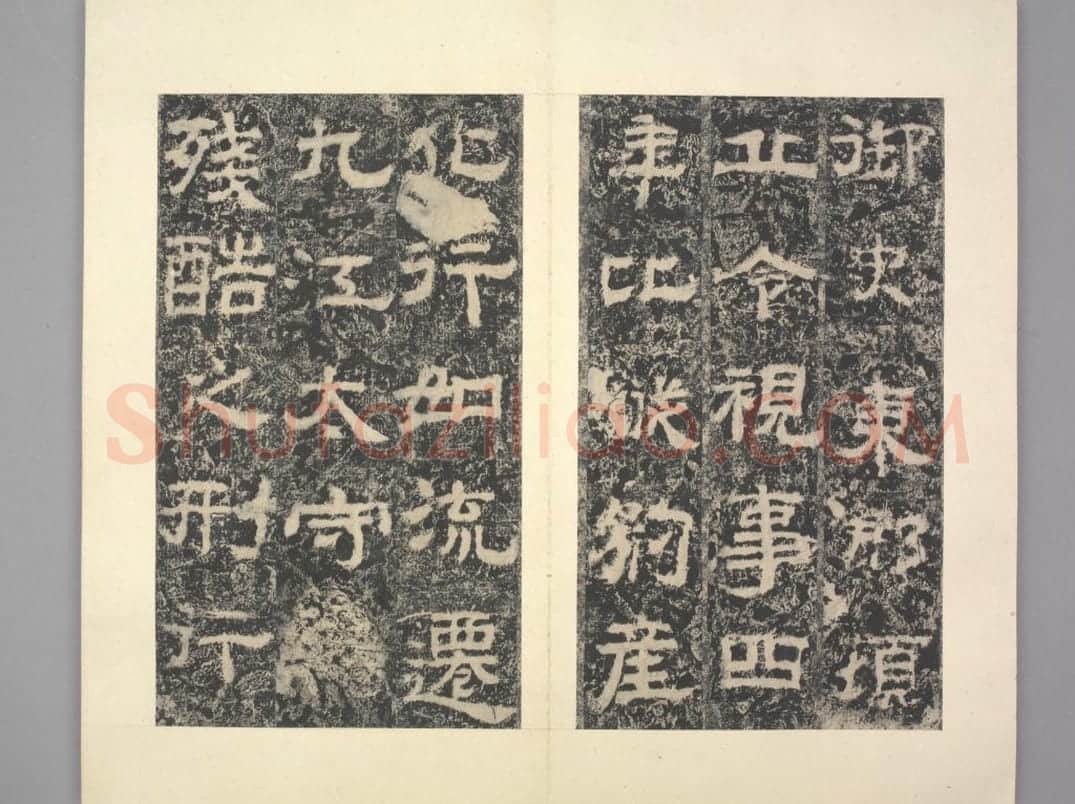 御史東郡頓
丘令視事四
年比縱豹產
化行如流遷
九江大守
殘酷之刑行
Shufaziliao.COM